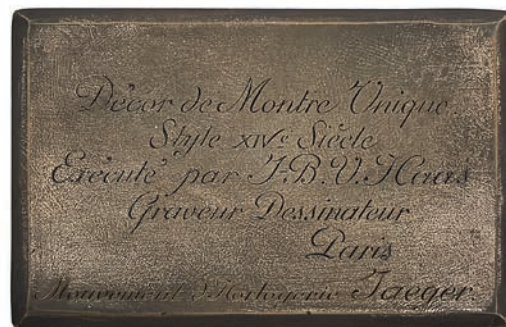 Décor de Montre Unique.
Style XIVe Siècle
Exécuté par J.B.V. Haas
Graveur Dessinateur
Paris
Mouvement d'Horlogerie Jaeger.